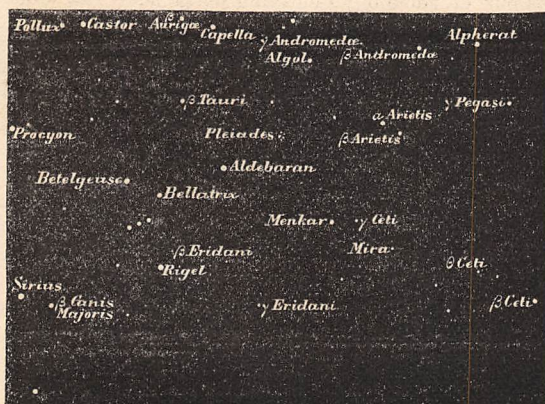 Pollux Castor β Aurigæ Capella γ Andromedæ Alpherat
Algol β Andromedæ
β Tauri α Arietis γ Pegasi
Procyon Pleiades β Arietis
Aldebaran
Betelgeuse
Bellatrix
Menkar γ Ceti
β Eridani Mira
Rigel θ Ceti
Sirius
β Canis Majoris γ Eridani β Ceti